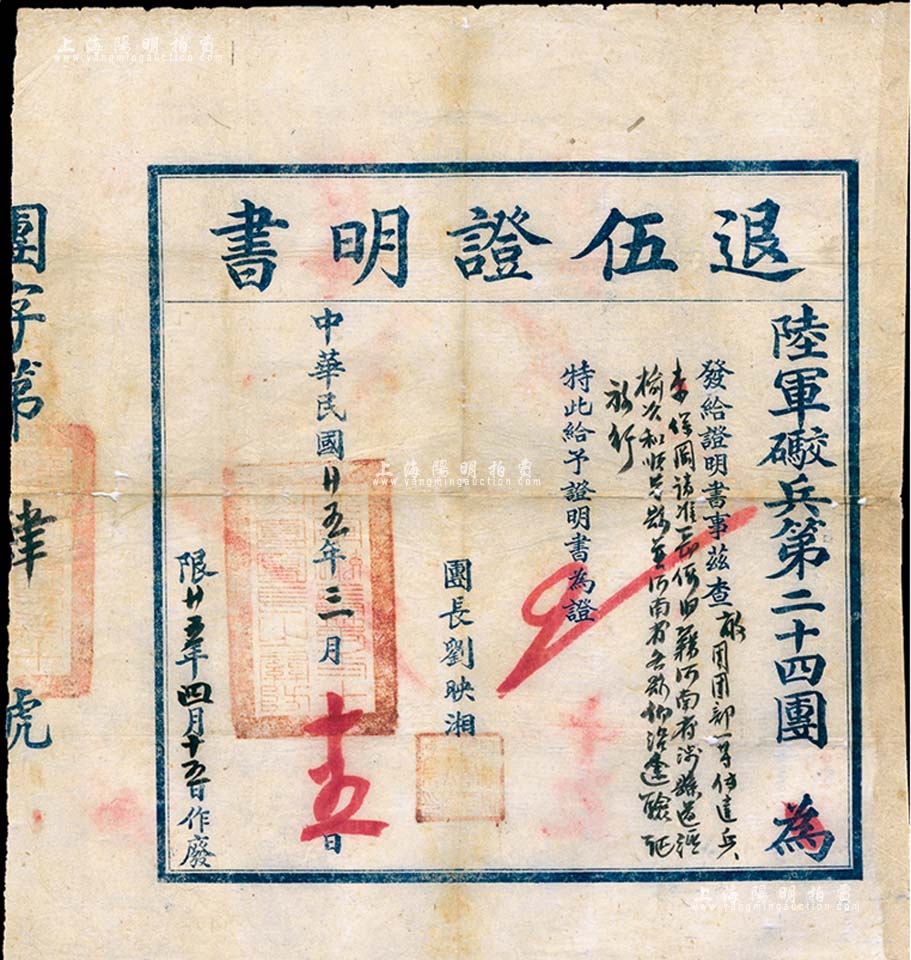 上海陽明拍賣
www.yangmingauction.com
退伍證明書
陸軍礮兵第二十四團 為
發給證明書事茲查敝團團部一等傳達兵
李保関請准長假回籍河南省涉縣道經
榆次和順各縣至河南省各縣仰沿途驗証
放行
特此給予證明書為證
團長劉映湘
中華民國廿五年三月十五日
限廿五年四月十五日作廢
團字第肆號
上海陽明拍賣
www.yangmingauction.com
上海陽明拍賣
www.yangmingauction.com